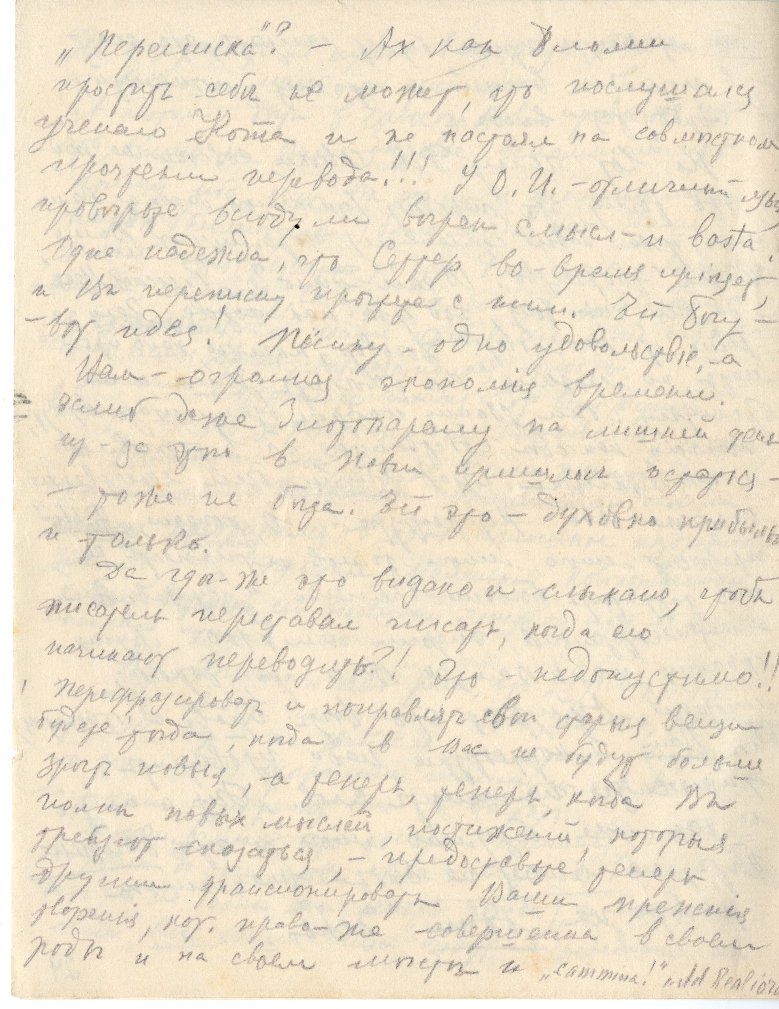 „Переписка"? – Ах как Фломин
простить себѣ не может, что послушался
ученаго Кота и не настоял на совмѣстном
прочтении перевода!!! У О. И. – отличный язык,
провѣрьте всюду ли вѣрен смысл – и basta!
Одна надежда, что во-время приѣдет,
и Вы переписку прочтете с ним. Ей Богу –
– вот идея! – одно удовольствіе, – а
Вам – огромная экономія времени.
даже на лишній день
из-за этого в остаться –
– тоже не бѣда. Ей это – духовно прибыльно
и только.
Да гдѣ-же это видано и слыхано, чтобы
писатель переставал писать, когда его
начинают переводить?! Это – недопустимо!!
Перефразировать и поправлять свои старыя вещи
будете тогда, когда в Вас не будут больше
зрѣть новыя, – а теперь, теперь, когда Вы
полны новых мыслей, постижений, которыя
требуют сказаться, – предоставьте теперь
другим Ваши прежнія
творенія, кот. право-же совершенны в своем
родѣ и на своем мѣстѣ и „ "Ad Realiora